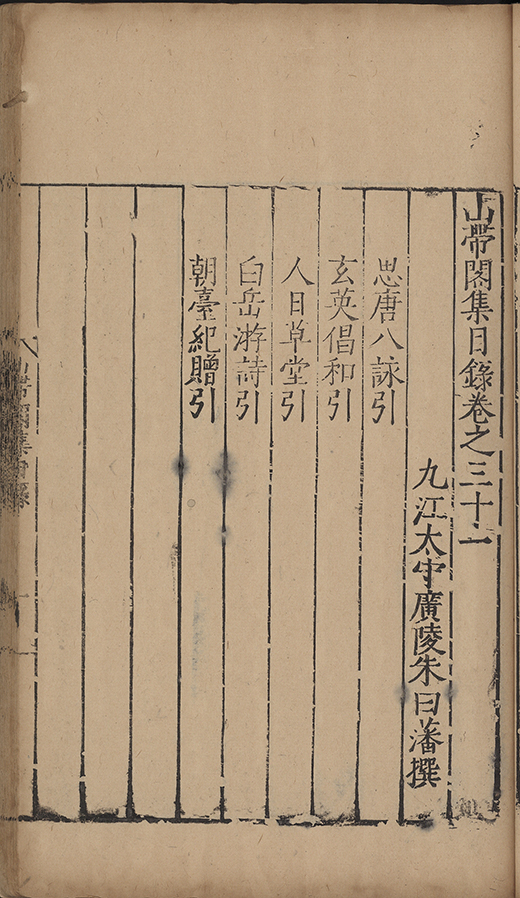 山帶閣集目錄卷之三十一
九江太守廣陵朱曰藩撰
思唐八詠引
玄英倡和引
人日草堂引
白岳游詩引
朝臺紀贈引